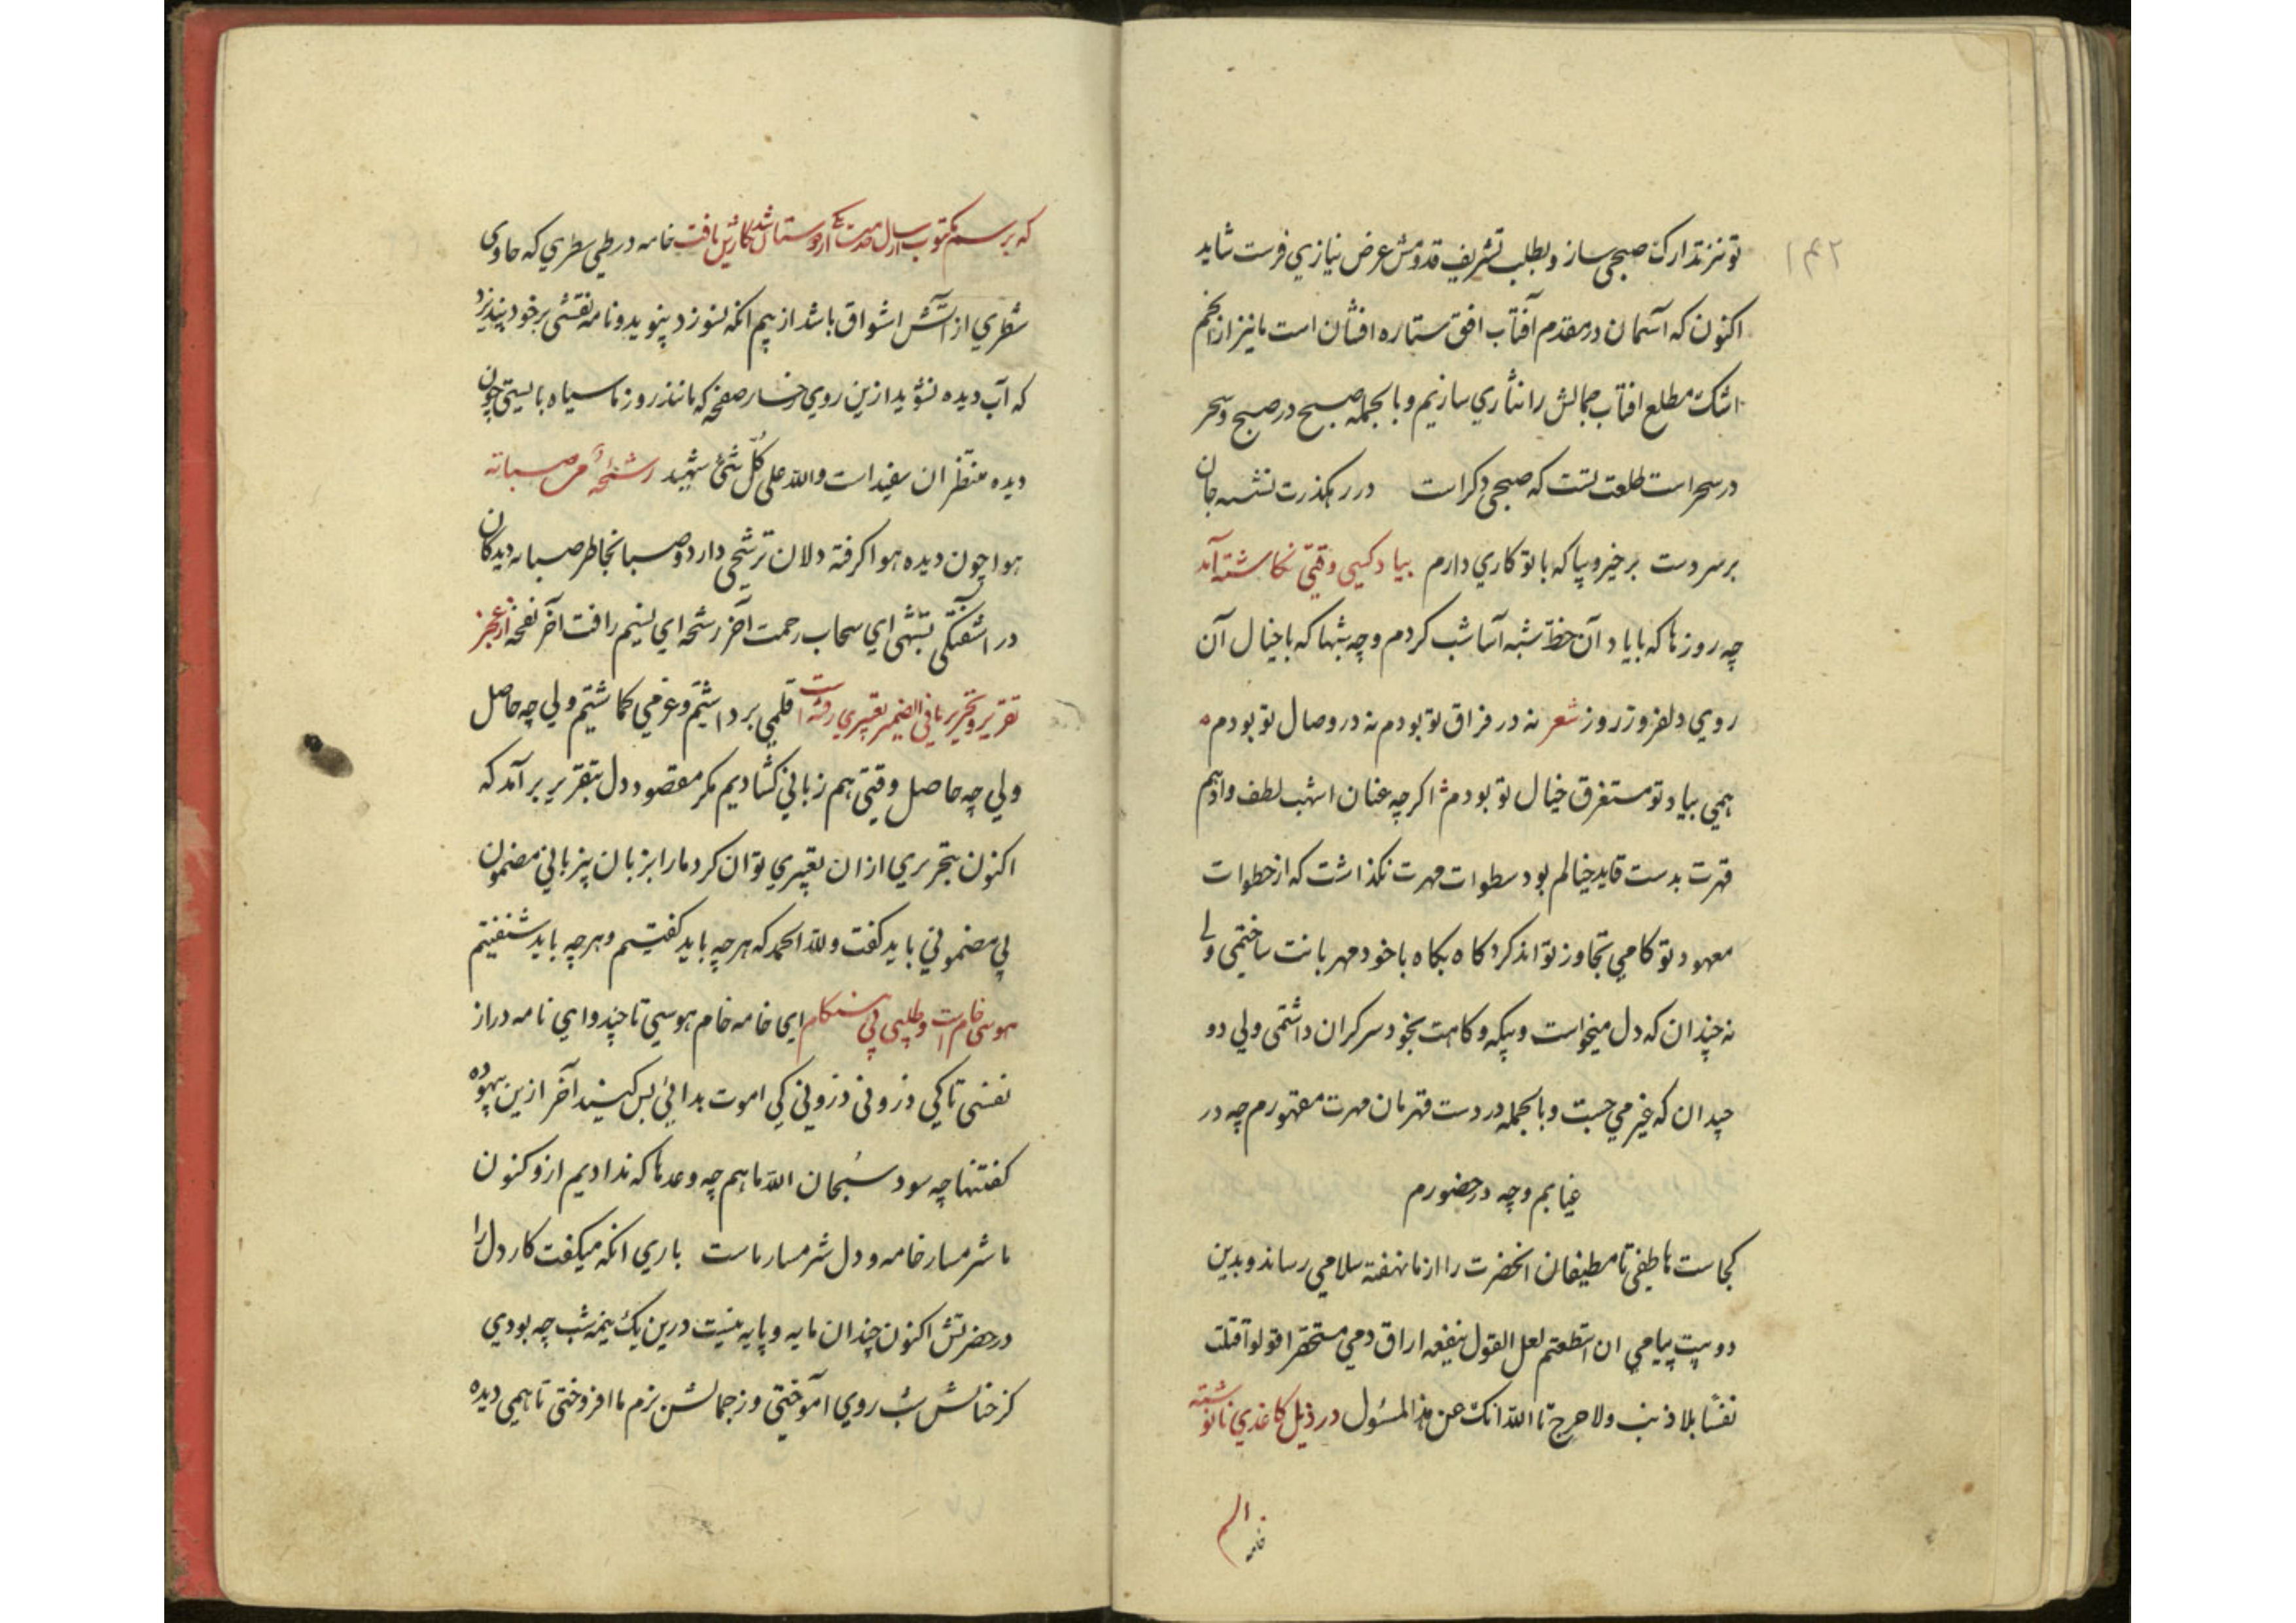 ۱۴۲
تو نیز تدارک صبحی ساز و بطلب تشریف قدومش عرض نیازی فرست شاید
اکنون که آسمان در مقدم آفتاب افق ستاره افشان است ما نیز از انجم
اشک مطلع افتاب جمالش را نثاری سازیم و بالجمله صبح در صبح و سحر
در سحر است طلعت تست که صبحی دکر است در رهکذرت نشسه جان
بر سر دست برخیز و بیا که با تو کاری دارم بیاد کسی وقتی نکاشته آمد
چه روزها که با یاد آن خط شبه آسا شب کردم و چه شبها که با خیال آن
روی دلفروز روز شعر نه در فراق تو بودم نه در وصال تو بودم
همی بیاد تو مستغرق خیال تو بودم اکرچه عنان اشهب لطف و ادهم
قهرت بدست قاید خیالم بود سطوات مهرت نکذاشت که از خطوات
معهود تو کامی تجاوز تواند کرد کاه بکاه با خود مهربانت ساختمی ولی
نه چندان که دل میخواست و بیکه و کاهت بخود سرکران داشتمی ولی دو
چندان که غیر می جست و بالجمله در دست قهرمان مهرت مقهورم چه در
غیابم و چه در حضورم
کجاست هاطفی تا مطیفان انحضرت را از ما نهفته سلامی رساند و بدین
دو بیت پیامی ان استطعتم لعل القول ینفعه اراق دمی مستحقرا قولوا قتلت
نفسا بلا ذنب ولا حرج تاالله انک عن هذا المسئول در ذیل کاغذی نانوشته
الم
خامه
که برسم مکتوب ارسال خدمت یکی از دوستان شد نکارش یافت خامه در طی سطری که حاوی
شطری از آتش اشواق باشد از بیم انکه نسوزد پنوید و نامه نقشی بر خود نپذیرد
که آب دیده نشوید ازین روی رخسار صفحه که مانند روز ما سیاه بایستی چون
دیده منتظران سفید است والله علی کل شئ شهید رشحهٔ من صباته
هوا چون دیده هوا کرفته دلان ترشحی دارد و صبا بخاطر صبا به دیدکان
در اشفتکی تشبهی ای سحاب رحمت آخر رشحه ای نسیم رافت آخر نفحه از عجز
تقریر و تحریر مافی الضمیر تعبیری رفته است قلمی برداشتیم و عزمی کماشتیم ولی چه حاصل
ولی چه حاصل وقتی هم زبانی کشادیم مکر مقصود دل بتقریر برآمد که
اکنون بتحریری از ان تعبیری توان کرد ما را بزبان بیزبانی مضمون
بی مضمونی باید کفت و لله الحمد که هر چه باید کفتیم و هر چه باید شنفتیم
هوسی خام است و طلبی بی هنکام ای خامه خام هوسی تا چند و ای نامه دراز
نفسی تا کی ذرونی ذرونی کی اموت بدائی بس کنید آخر ازین بیهوده
کفتنها چه سود سبحان الله ما هم چه وعدها که ندادیم ازو کنون
ما شرمسار خامه و دل شرمسار ماست باری انکه میکفت کار دل را
در حضرتش اکنون چندان مایه و پایه نیست درین یک نیمه شب چه بودی
کز خیالش شب روی آموختی وز جمالش بزم ما افروختی تا همی دیده